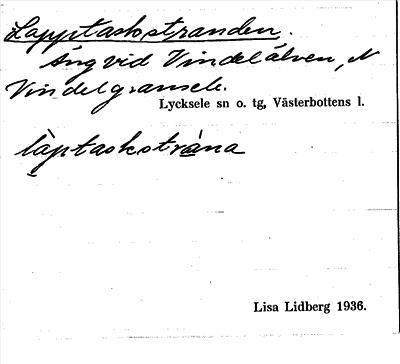 Lapptaskstranden.
Äng vid Vindelälven, N
Vindelgransele.
Lycksele sn o. tg, Västerbottens l.
làptaskstràna
Lisa Lidberg 1936.